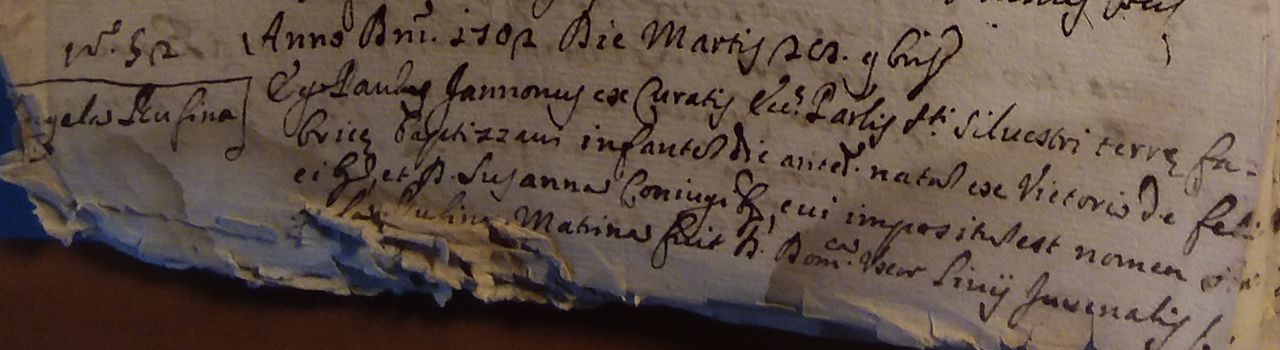 N.º 52
Anno Dnĩ. 1702 Die Martis 28. 9bris
Angela Rufina
Ego Paulus Jannonus ex Curatis Ecc. Parlis S.ti Siluestri terrę Fa-
bricę baptizzaui infantẽ die anted. natã ex Victorio de feli-
cibus et D. Susanna Coniugib, cui impositũ est nomen
Rufina Matrina fuit D. Dom.ca Vxor Liuij Juuenalis